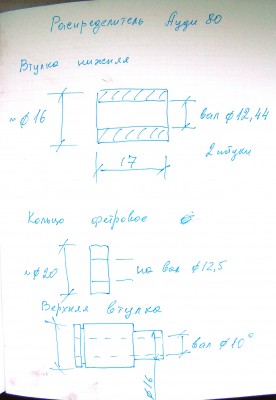 Распределитель Ауди 80
Втулка нижняя
~ø16
вал ø12,44
2 штуки
17
Кольцо фетровое
~ø20
на вал ø12,5
Верхняя втулка
вал ø10
ø16